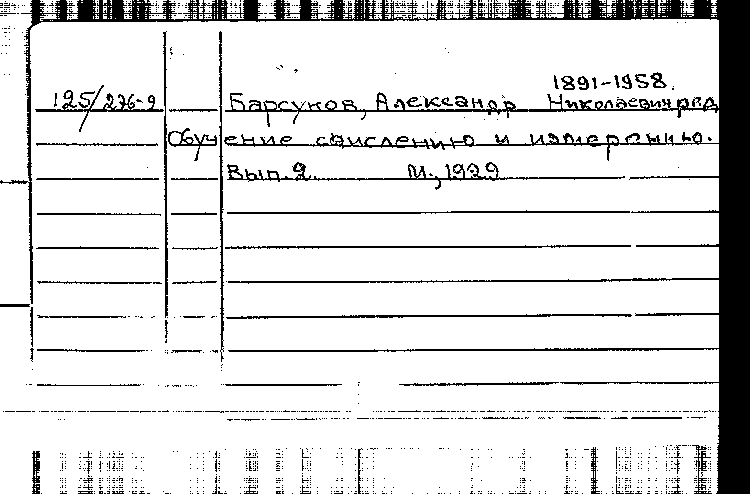 1891-1958.
125/276-9 Барсуков, Александр Николаевич ред
Обучение счислению и измерению.
Вып.2. М., 1929